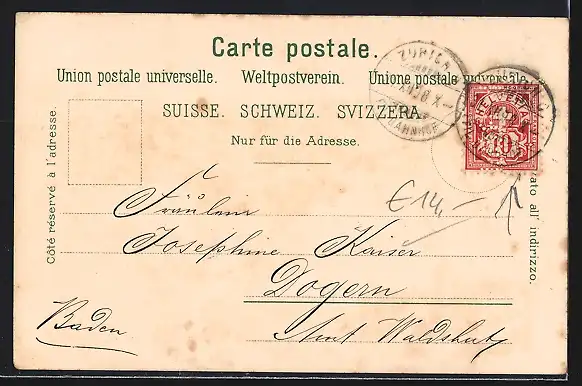 Carte postale.
Union postale universelle. Weltpostverein. Unione postale universale.
SUISSE. SCHWEIZ. SVIZZERA.
Nur für die Adresse.
Côté réservé à l'adresse.
HELVETIA
10
€14,-
Fräulein
Josephine Kaiser
Dogern
Amt Waldshut
Baden
zato all' indirizzo.